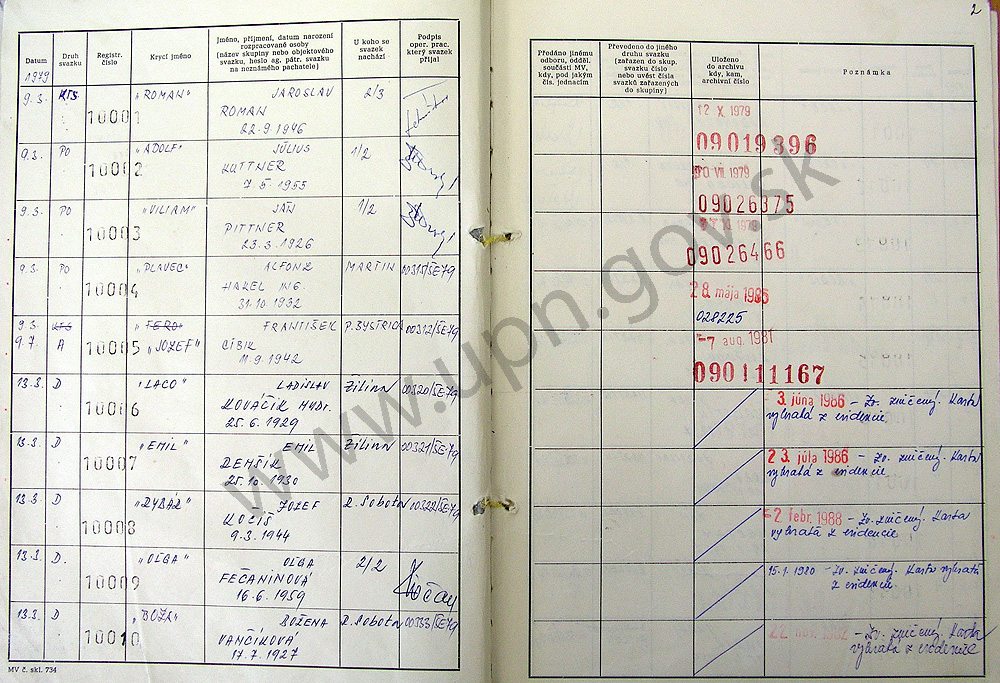 2
Datum
1979
Druh
svazku
Registr.
číslo
Krycí jméno
Jméno, příjmení, datum narození
rozpracované osoby
(název skupiny nebo objektového
svazku, heslo ag. pátr. svazku
na neznámého pachatele)
U koho se
svazek
nachází
Podpis
oper. prac.
který svazek
přijal
9.3. KTS 10001 „ROMAN" JAROSLAV 2/3
ROMAN
22.9.1946
9.3. PO 10002 „ADOLF" JÚLIUS 1/2
KUTTNER
7.5.1955
9.3. PO 10003 „VILIAM" JÁN 1/2
PITTNER
23.3.1926
9.3. PO 10004 „PLAVEC" ALFONZ MARTIN
ING.
31.10.1932
9.3. KTS „FERO" FRANTIŠEK P. BYSTRICA 00312/ŠE-79
9.7. A 10005 „JOZEF" CÍBIK
11.9.1942
13.3. D 10006 „LACO" LADISLAV ŽILINA 00320/ŠE-79
KOVÁČIK MUDr.
25.6.1929
13.3. D 10007 „EMIL" EMIL ŽILINA 00321/ŠE-79
DEMŠÍK
25.10.1930
13.3. D 10008 „RYBÁR" JOZEF R. Sobota 00322/ŠE-79
KOČIŠ
9.3.1944
13.3. D. 10009 „OĽGA" OĽGA 2/2
FEČANINOVÁ
16.6.1959
13.3. D 10010 „BOŽA" BOŽENA R. Sobota 00333/ŠE-79
VANČÍKOVÁ
17.7.1927
MV č. skl. 734
Předáno jinému
odboru, odděl.
součásti MV,
kdy, pod jakým
čís. jednacím
Převedeno do jiného
druhu svazku
(zařazen do skup.
svazku číslo
nebo uvést čísla
svazků zařazených
do skupiny)
Uloženo
do archivu
kdy, kam,
archivní číslo
Poznámka
12 X 1979
09019396
VII. 1979
09026375
1979
09026466
28. mája 1985
028225
-7 aug. 1981
090111167
3. júna 1986 – Zv. zničený. Karta
vybratá z evidencie
23. júla 1986 – Zv. zničený. Karta
vybratá z evidencie
-2. febr. 1988 – Zv. zničený. Karta
vybratá z evidencie
15.1.1980 – Zv. zničený. Karta vybratá
z evidencie
Zv. zničený. Karta
vybratá z evidencie
www.upn.gov.sk